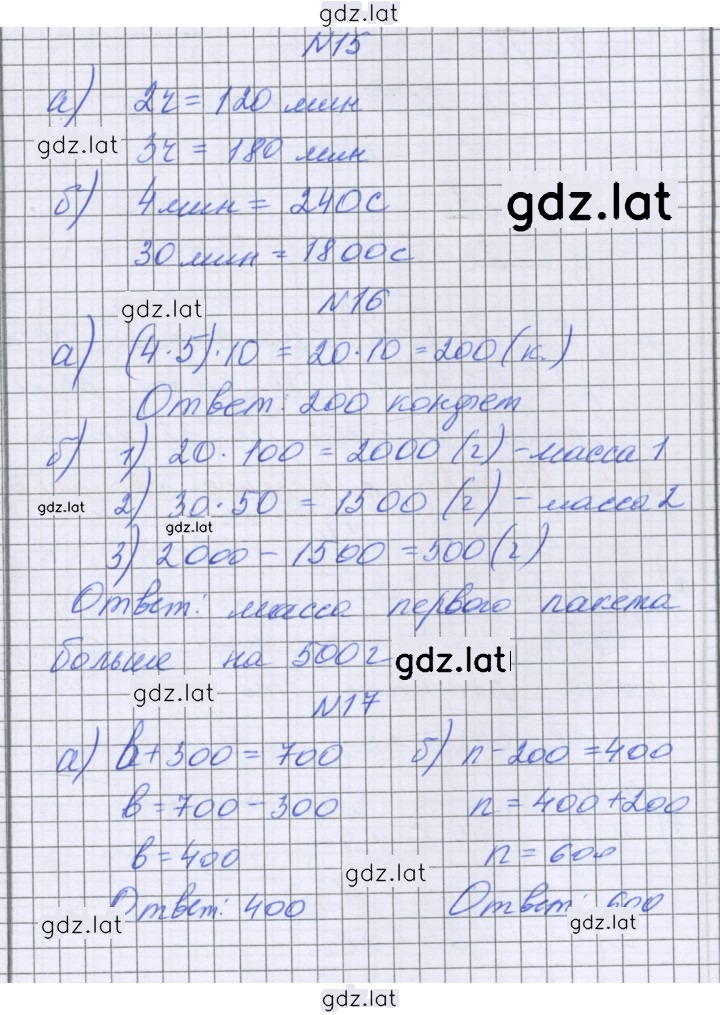 gdz.lat
N15
а) 2ч = 120 мин
gdz.lat 3ч = 180 мин
б) 4 мин = 240с
gdz.lat
30 мин = 1800с
gdz.lat N16
а) (4·5)·10 = 20·10 = 200 (к.)
Ответ: 200 конфет
б) 1) 20·100 = 2000 (г) - масса 1
gdz.lat 2) 30·50 = 1500 (г) - масса 2
gdz.lat
3) 2000 - 1500 = 500 (г)
Ответ: масса первого пакета
больше на 500г gdz.lat
gdz.lat N17
а) в+300 = 700 б) n-200 = 400
в = 700 - 300 n = 400 + 200
в = 400 n = 600
gdz.lat
Ответ: 400 Ответ: 600
gdz.lat gdz.lat
gdz.lat